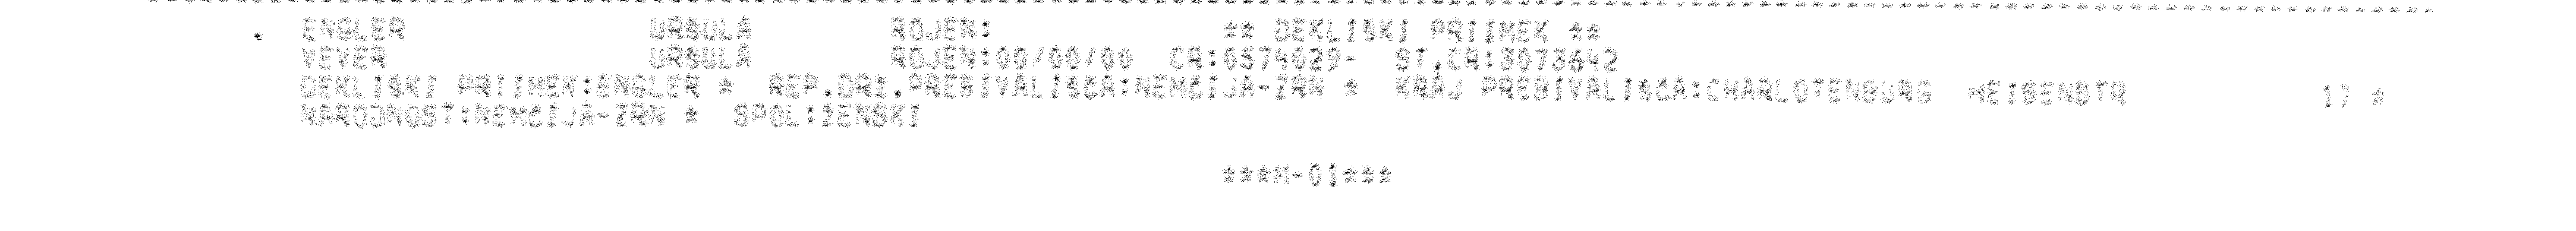 ENGLER URSULA ROJEN: ** DEKLISKI PRIIMEK **
VEVER URSULA ROJEN:00/00/00 CA:0574029- ST.CA:3073642
DEKLISKI PRIIMEK:ENGLER * REP.DRZ.PREBIVALISCA:NEMCIJA-ZRN * KRAJ PREBIVALISCA:CHARLOTENBURG MEISENSTR 17 *
NARODNOST:NEMCIJA-ZRN * SPOL:ZENSKI
***M-01***